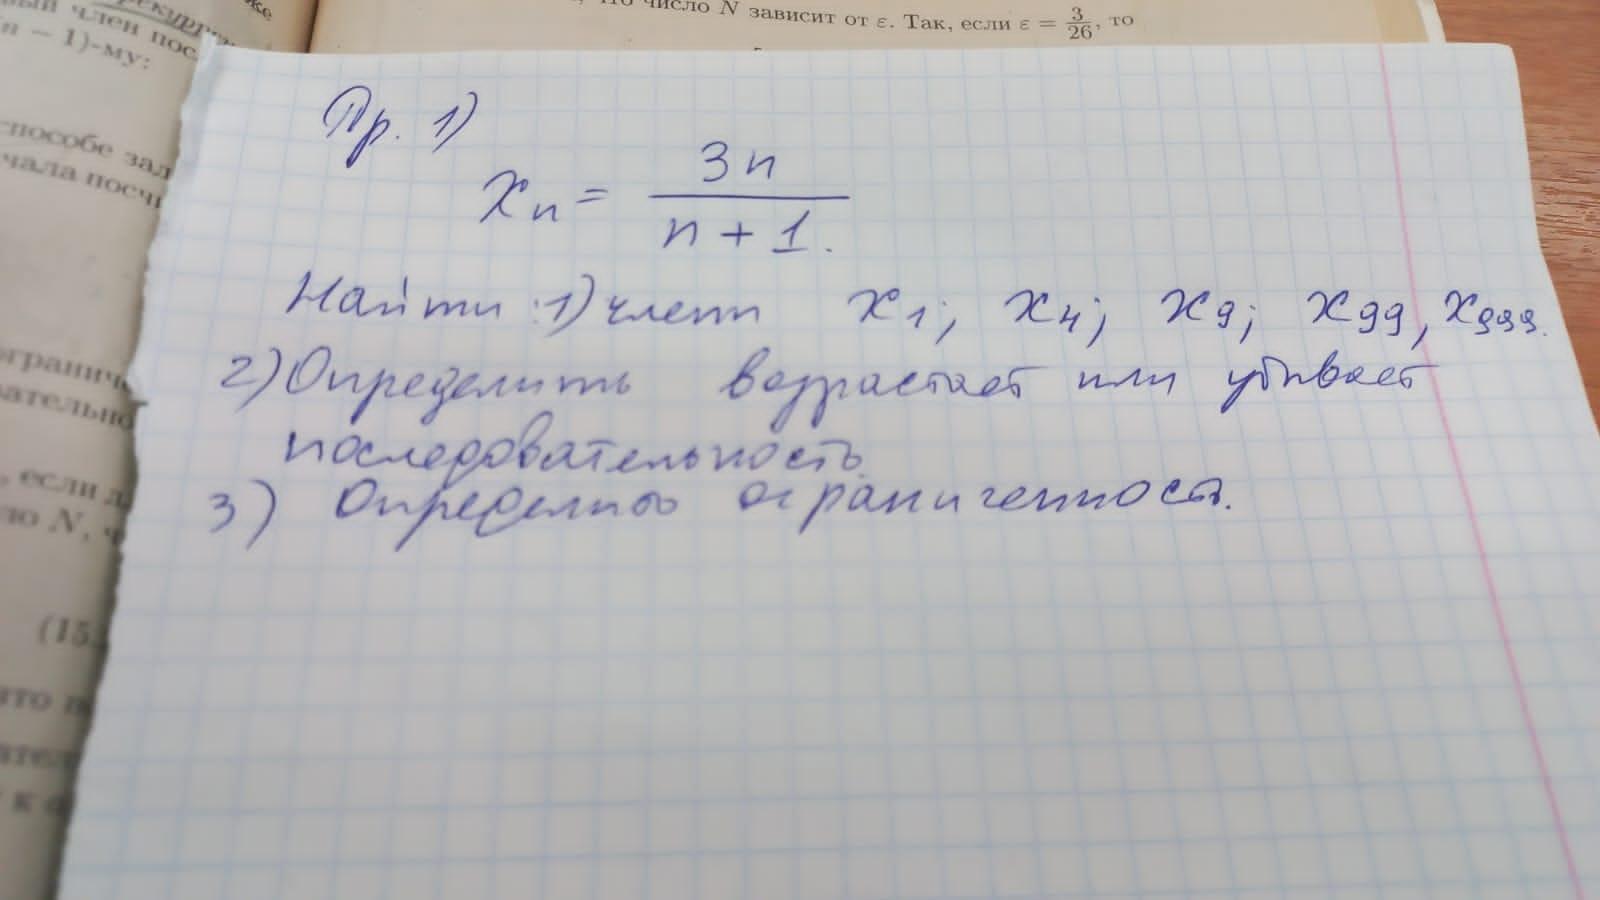 рекурр
же
вый член пос
n – 1)-му:
способе зад
чала посчи
огранич
вательно
, если д
ло N, ч
(15.
что п
ател
к а
что число N зависит от ε. Так, если ε = 3/26, то
Пр. 1)
xₙ = 3n/(n + 1).
Найти: 1) члены x₁; x₄; x₉; x₉₉, x₉₉₉.
2) Определить возрастает или убывает
последовательность.
3) Определить ограниченность.